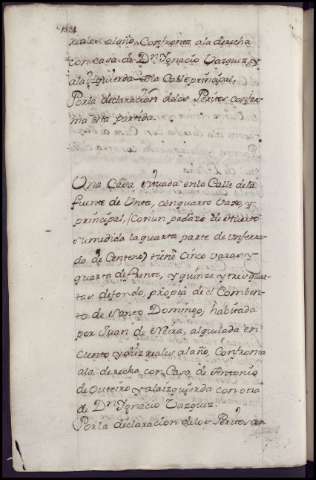 reales al año, Confronta ala derecha
con casa de Dn. Ignacio Vazquez, y
ala Izquierda dha Calle prinsipal,
Por la declarazion delos Peritos confor
ma esta partida.
Una Casa, situada en la Calle dela
fuente de Unta, con quarto vaxo, y
prinsipal, Con un pedazo de
la quarta parte de un ferra
do de Centeno, tiene Cinco varas y
quarta de frente, y quinze y tres quar
tas de fondo, propia de el Comben
to de Santo Domingo, havitada
por Juan de Neira, alquilada en
ciento y diez reales al año, Confronta
ala derecha con Casa de Antonio
de Outeiro y ala izquierda con otra
de Dn. Ignacio Vazquez
Por la declaracion delos Peritos con